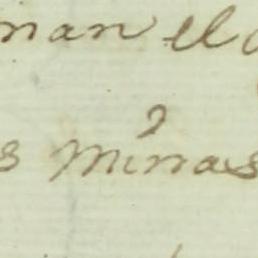 nan el
s minas